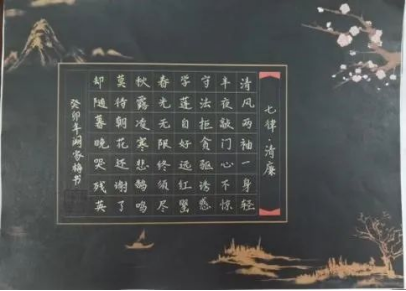 七律·清廉
清风两袖一身轻
半夜敲门心不惊
守法拒贪诱惑
学莲自好远红
春光无限终须尽
秋露凌寒悲鸣
莫待朝花还谢了
却随暮晚哭残英
癸卯年家梅书